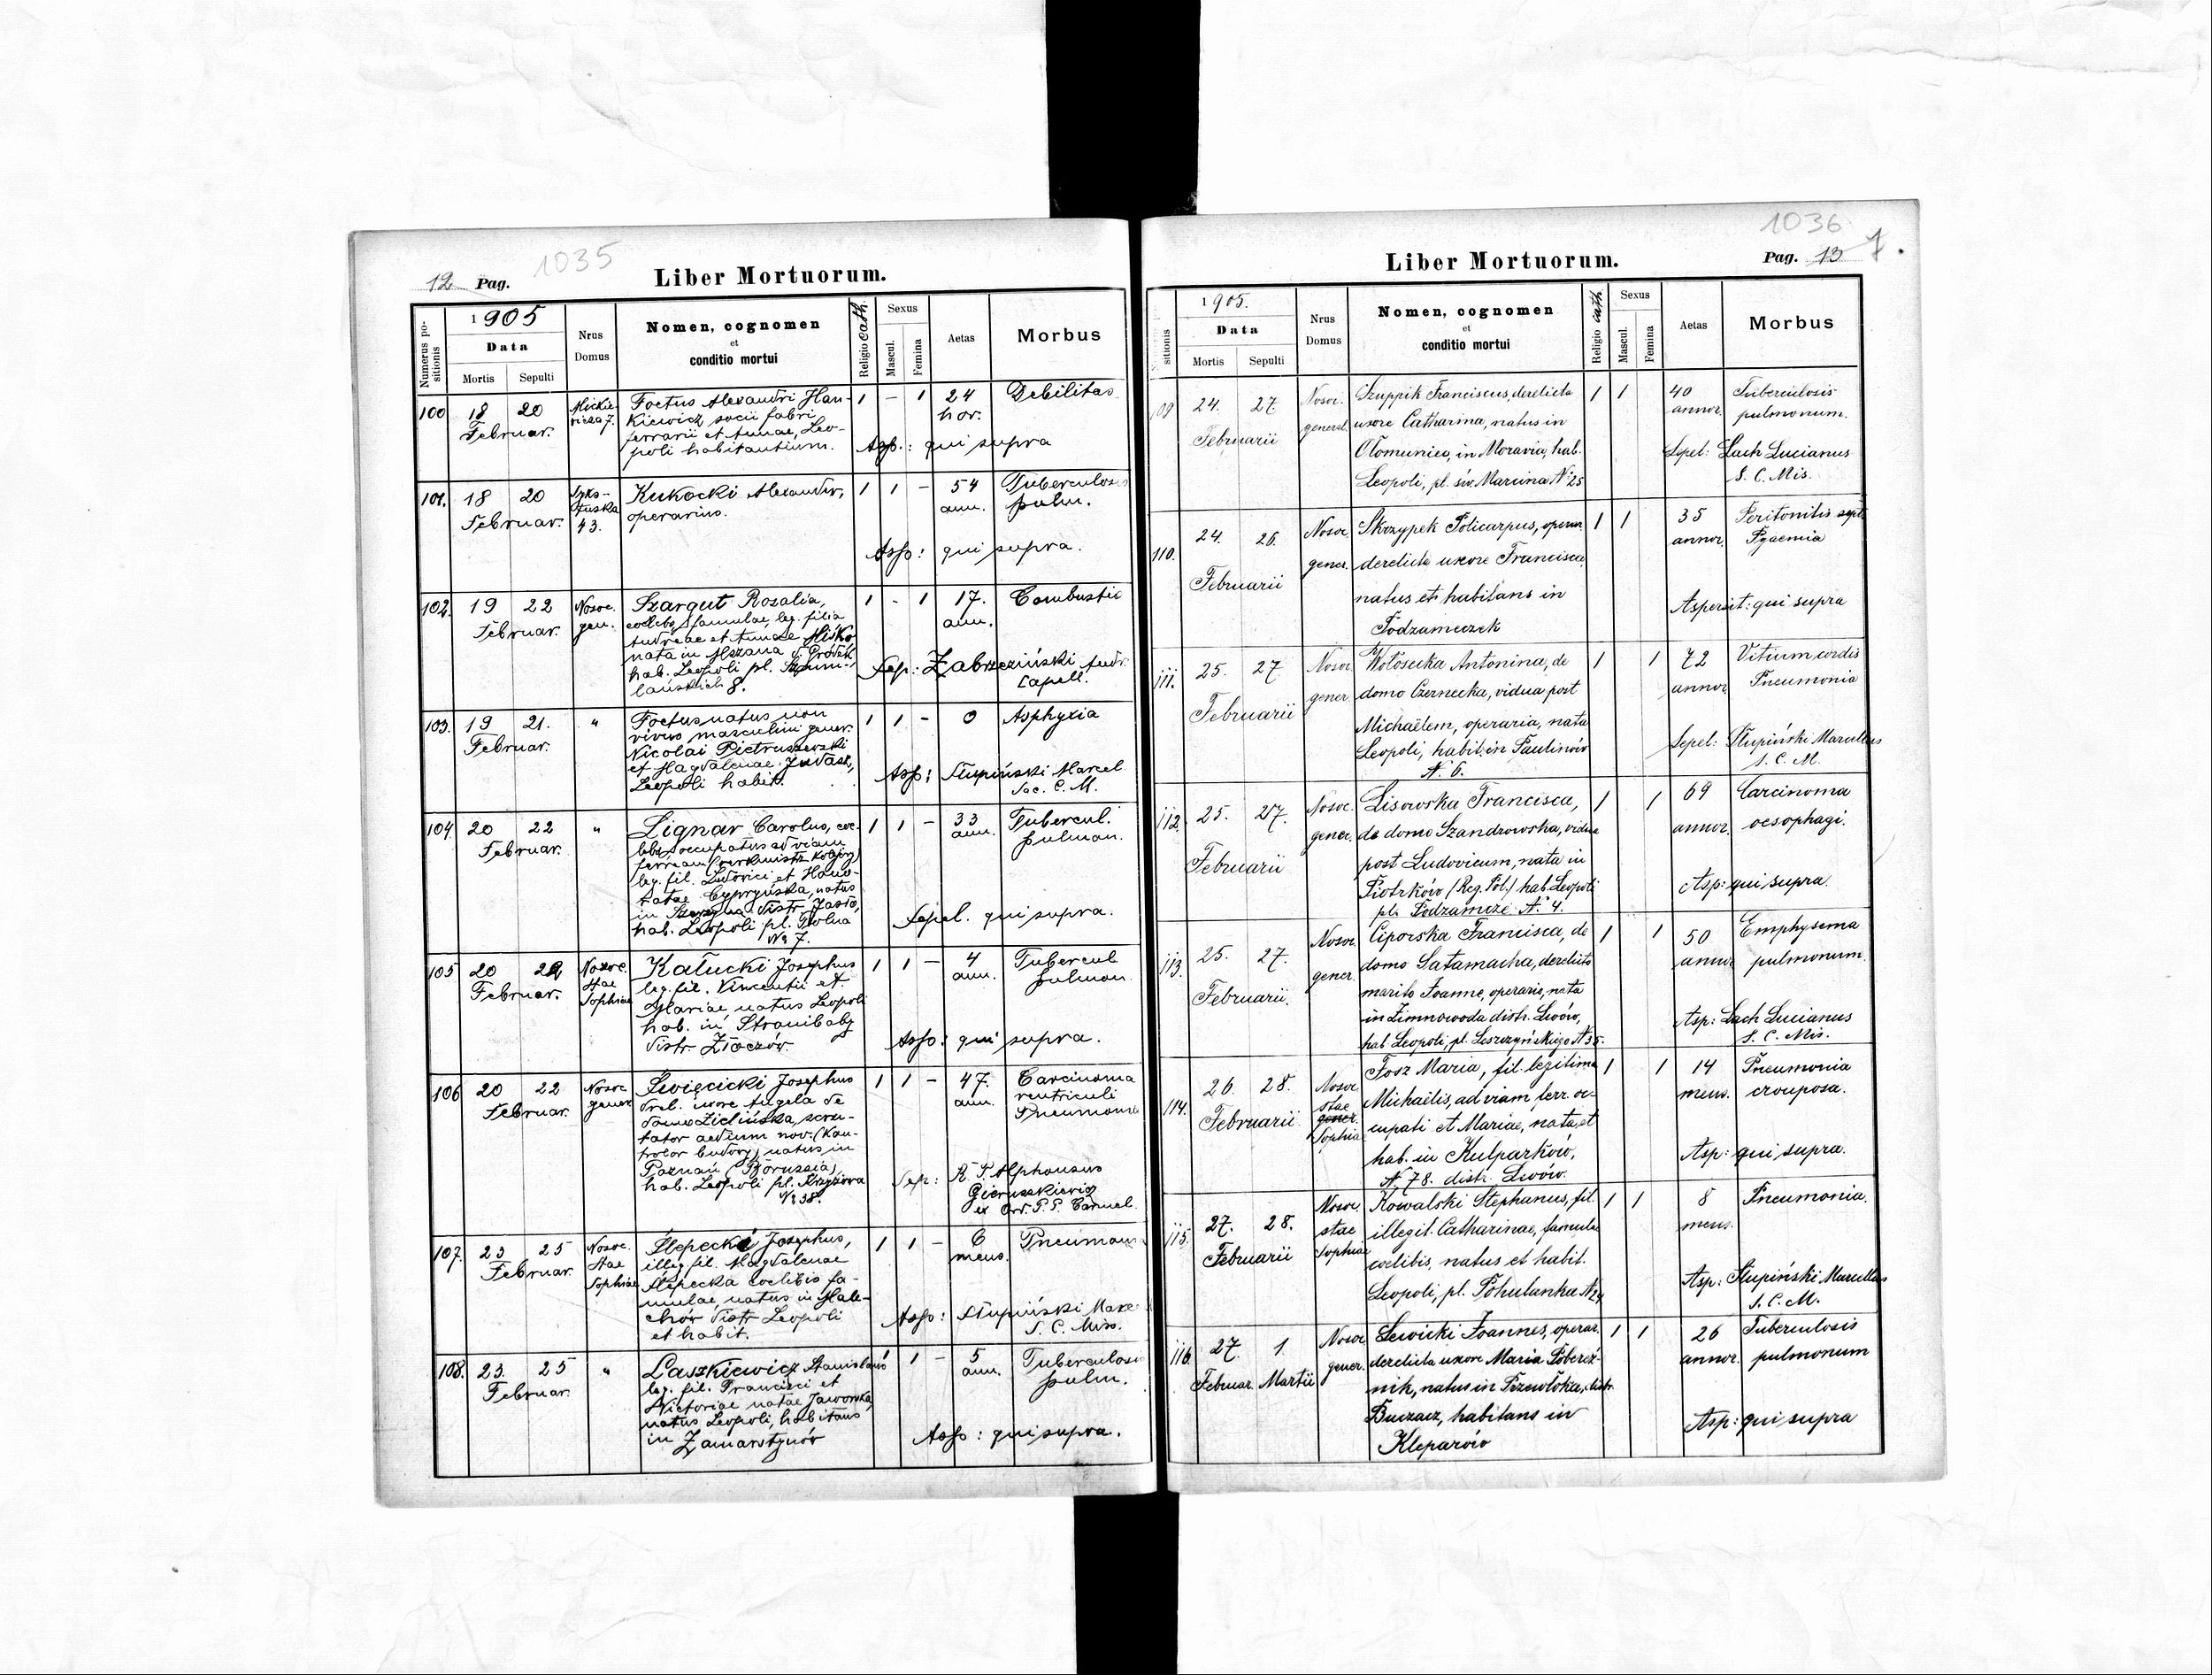 1035
12 Pag.
Liber Mortuorum.
Numerus positionis
1905
Data
Mortis
Sepulti
Nrus Domus
Nomen, cognomen
et
conditio mortui
Religio cath.
Sexus
Mascul.
Femina
Aetas
Morbus
100 18 20 Mickie- Foetus Alexandri Han- 1 - 1 24 Debilitas
Februar. wicza 7. kiewicz socii fabri hor.
ferrarii et Annae, Leo-
poli habitantium. Asp.: qui supra
101. 18 20 Syks- Kukocki Alexander, 1 1 - 54 Tuberculos
Februar. tuska operarius. ann. pulm.
43.
Asp: qui supra.
102. 19 22 Nosoc. Szargut Rosalia, 1 - 1 17. Combustio
Februar. gen. coelebs, famulae, leg. filia ann.
Andreae et Annae Miśko
nata in Mszana d. Gródek
hab. Leopoli pl. Sep: Zabrzeziński Andr.
8. Capell.
103. 19 21. " Foetus natus non 1 1 - 0 Asphyxia
Februar. vivus masculini gener.
Nicolai Pietruszewski
et Magdalenae
Leopoli habit. Asp: Słupiński Marcel
Sac. C. M.
104 20 22 " Lignar Carolus, coe- 1 1 - 33 Tubercul.
Februar. lebs, occupatus ad viam ann. pulmon.
ferream (werkmistrz kolejowy)
leg. fil. Ludovici et Hono-
ratae Cypryńska, natus
in distr. Jasło,
hab. Leopoli pl. Solna Sepel. qui supra.
Nr 7.
105 20 22 Nosoc. Kałucki Josephus 1 1 - 4 Tubercul
Februar. Stae leg. fil. Vincentii et ann. pulmon.
Sophiae Mariae, natus Leopoli
hab. in Stronibaby Asp: qui supra.
distr. Złoczów.
106 20 22 Nosoc Święcicki Josephus 1 1 - 47. Carcinoma
Februar. gener drel. uxore Angela de ann. ventriculi
domo Zielińska, scru- Pneumonia
tator aedium nov. (kon-
trolor budowy) natus in
Poznań (Borussia), Sep: R. P. Alphonsus
hab. Leopoli pl. Krzyżowa Gieruszkiewicz
Nr 38. ex Ord. P. P. Carmel.
107. 23 25 Nosoc. Ślepecki Josephus, 1 1 - 6 Pneumon
Februar. Stae illeg. fil. Magdalenae mens.
Sophiae Ślepecka coelibis fa-
mulae natus in Male-
chów distr Leopoli Asp: Słupiński Marc
et habit. S. C. Miss.
108. 23 25 " Laszkiewicz Stanislaus 1 - 5 Tuberculosis
Februar. leg. fil. Francisci et ann. pulm.
Victoriae natae Jaworska,
natus Leopoli, habitans
in Zamarstynów Asp: qui supra.
1036
Liber Mortuorum.
Pag. 13 7.
sitionis
1905.
Data
Mortis
Sepulti
Nrus Domus
Nomen, cognomen
et
conditio mortui
Religio cath.
Sexus
Mascul.
Femina
Aetas
Morbus
109 24. 27. Nosoc. Szuppik Franciscus, derelicta 1 1 40 Tuberculosis
Februarii general. uxore Catharina, natus in annor. pulmonum.
Olomuniec, in Moravia, hab. Sepel: Lach Lucianus
Leopoli, pl. św. Marcina N. 25 S. C. Mis.
110. 24. 26. Nosoc. Skrzypek Policarpus, operar 1 1 35 Peritonitis sept.
Februarii gener. derelicta uxore Francisca annor. Pyaemia
natus et habitans in Aspersit: qui supra
Podzameczek
111. 25. 27. Nosoc Wołosecka Antonina, de 1 1 72 Vitium cordis
Februarii gener. domo Czernecka, vidua post annor. Pneumonia
Michaëlem, operaria, nata
Leopoli, habit. in Paulinów Sepel: Słupiński Marcellus
N. 6. S. C. M.
112. 25. 27. Nosoc. Lisowska Francisca, 1 1 69 Carcinoma
Februarii gener. de domo Szandrowska, vidua annor. oesophagi.
post Ludovicum, nata in
Piotrków (Reg. Pol.) hab. Leopoli Asp: qui supra.
pl. Podzamcze N. 4.
113. 25. 27. Nosoc. Ciporska Francisca, de 1 1 50 Emphysema
Februarii. gener. domo Satamacha, derelicto annor pulmonum.
marito Joanne, operaris, nata
in Zimnowoda distr. Lwów, Asp: Lach Lucianus
hab. Leopoli, pl. Leszczyńskiego N. 35. S. C. Mis.
114. 26. 28. Nosoc Fosz Maria, fil. legitima 1 1 14 Pneumonia
Februarii Stae Michaëlis, ad viam ferr. oc- mens. crouposa.
gener. cupati et Mariae, nata et
Sophiae hab. in Kulparków, Asp: qui supra.
N. 78. distr. Lwów.
115. 27. 28. Nosoc. Kowalski Stephanus, fil. 1 1 8 Pneumonia.
Februarii stae illegit. Catharinae, famulae mens.
Sophiae coelibis, natus et habit.
Leopoli, pl. Pohulanka N. 24 Asp: Słupiński Marcellus
S. C. M.
116. 27. 1. Nosoc Lewicki Joannes, operar. 1 1 26 Tuberculosis
Februar. Martii gener. derelicta uxore Maria Pobereź- annor. pulmonum
nik, natus in Przewłoka, distr.
Buczacz, habitans in Asp: qui supra
Kleparów